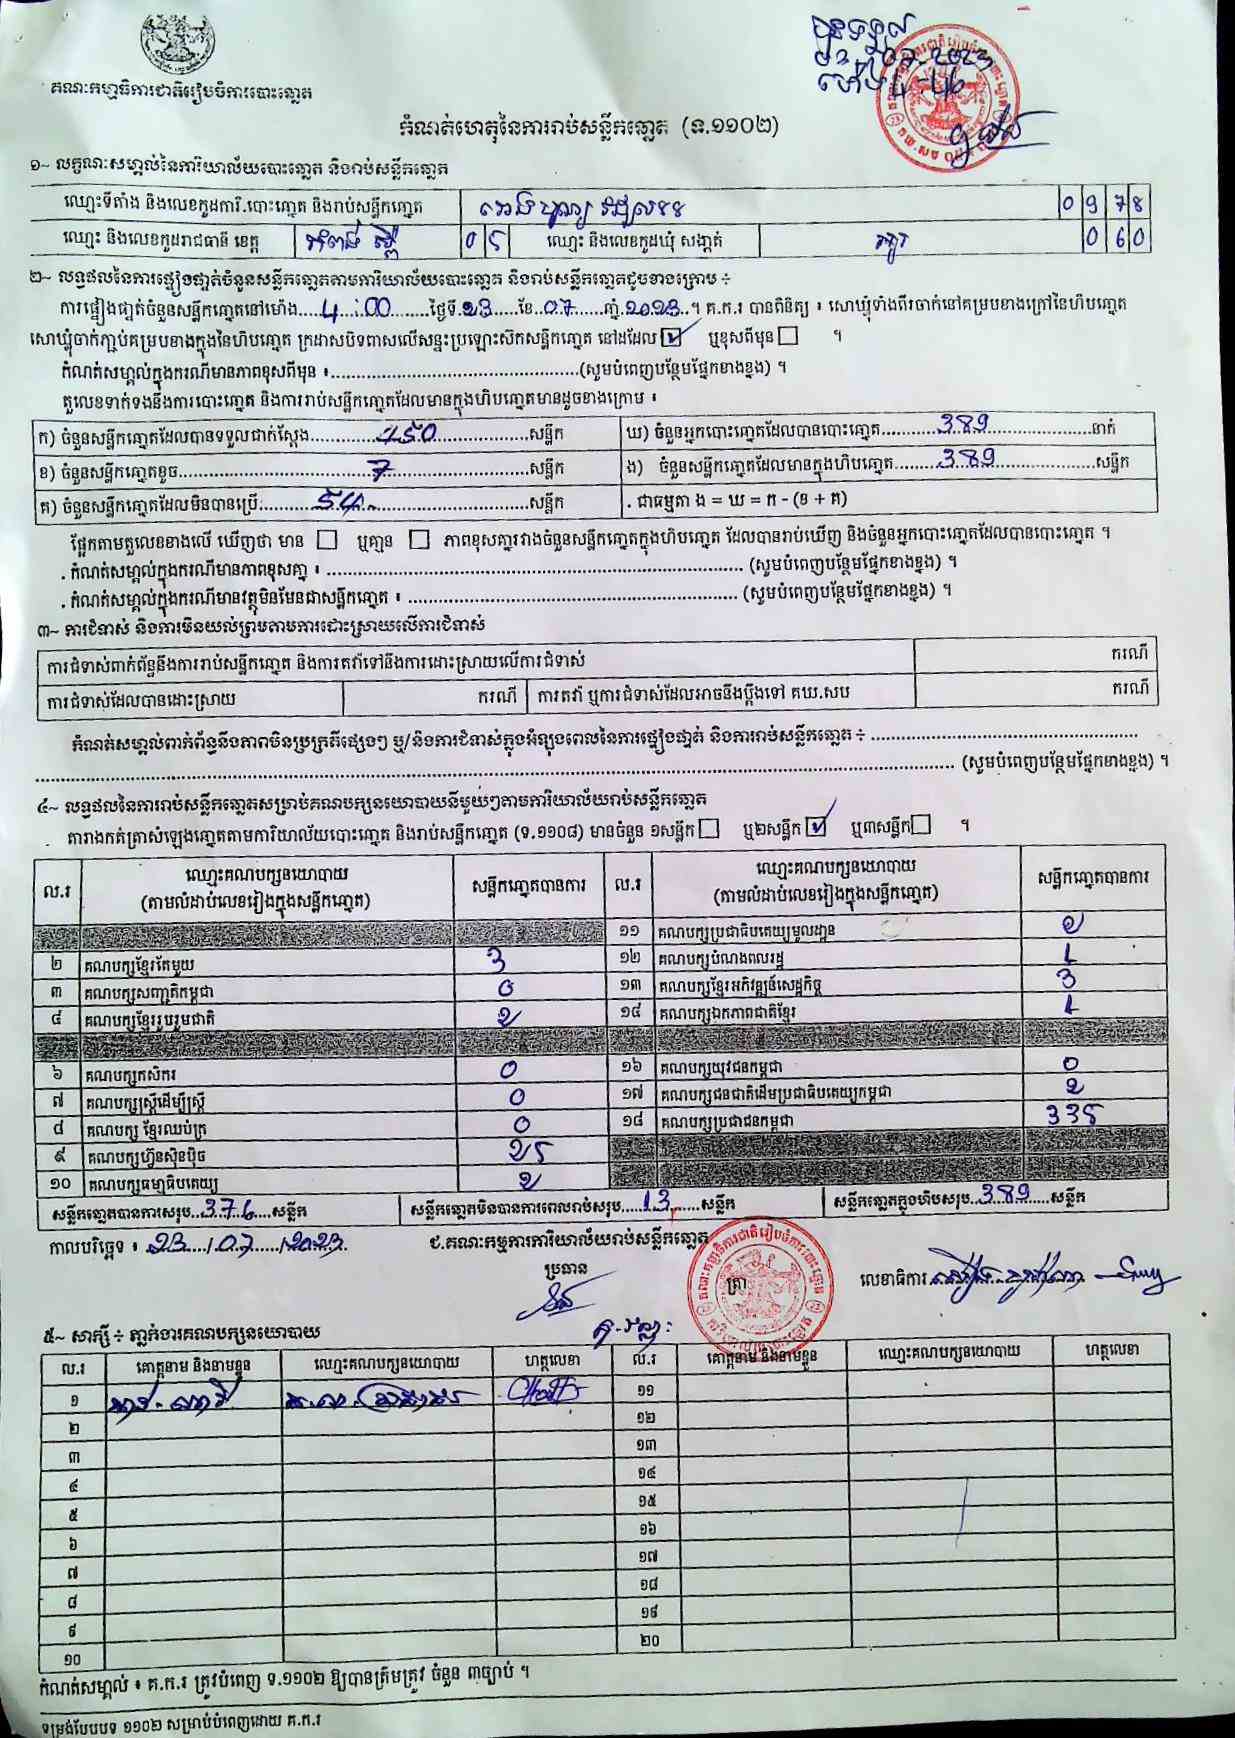 គណៈកម្មាធិការជាតិរៀបចំការបោះឆ្នោត
កំណត់ហេតុនៃការរាប់សន្លឹកឆ្នោត (ទ.១១០២)
១~ លក្ខណៈសម្គាល់នៃការិយាល័យបោះឆ្នោត និងរាប់សន្លឹកឆ្នោត
ឈ្មោះទីតាំង និងលេខកូដការិ.បោះឆ្នោត និងរាប់សន្លឹកឆ្នោត 0978
ឈ្មោះ និងលេខកូដរាជធានី ខេត្ត កំពង់ ស្ពឺ 05 ឈ្មោះ និងលេខកូដឃុំ សង្កាត់ 060
២~ លទ្ធផលនៃការផ្ទៀងផ្ទាត់ចំនួនសន្លឹកឆ្នោតតាមការិយាល័យបោះឆ្នោត និងរាប់សន្លឹកឆ្នោតដូចខាងក្រោម ÷
ការផ្ទៀងផ្ទាត់ចំនួនសន្លឹកឆ្នោតនៅម៉ោង....4:00.......ថ្ងៃទី.23.....ខែ..07.......ឆ្នាំ.2023..។ គ.ក.រ បានពិនិត្យ ៖ សោឃ្មុំទាំងពីរចាក់នៅគម្របខាងក្រៅនៃហិបឆ្នោត
សោឃ្មុំចាក់ភ្ជាប់គម្របខាងក្នុងនៃហិបឆ្នោត ក្រដាសបិទពាសលើសន្ទះប្រឡោះស៊កសន្លឹកឆ្នោត នៅដដែល ☑ ឬខុសពីមុន ☐ ។
កំណត់សម្គាល់ក្នុងករណីមានភាពខុសពីមុន ៖..................................................(សូមបំពេញបន្ថែមផ្នែកខាងខ្នង) ។
តួលេខទាក់ទងនឹងការបោះឆ្នោត និងការរាប់សន្លឹកឆ្នោតដែលមានក្នុងហិបឆ្នោតមានដូចខាងក្រោម ៖
ក) ចំនួនសន្លឹកឆ្នោតដែលបានទទួលជាក់ស្តែង..............450...................សន្លឹក ឃ) ចំនួនអ្នកបោះឆ្នោតដែលបានបោះឆ្នោត...........389....................នាក់
ខ) ចំនួនសន្លឹកឆ្នោតខូច.......................................7...........................សន្លឹក ង) ចំនួនសន្លឹកឆ្នោតដែលមានក្នុងហិបឆ្នោត.........389....................សន្លឹក
គ) ចំនួនសន្លឹកឆ្នោតដែលមិនបានប្រើ...........54................................សន្លឹក . ជាធម្មតា ង = ឃ = ក - (ខ + គ)
ផ្អែកតាមតួលេខខាងលើ ឃើញថា មាន ☐ ឬគ្មាន ☐ ភាពខុសគ្នារវាងចំនួនសន្លឹកឆ្នោតក្នុងហិបឆ្នោត ដែលបានរាប់ឃើញ និងចំនួនអ្នកបោះឆ្នោតដែលបានបោះឆ្នោត ។
. កំណត់សម្គាល់ក្នុងករណីមានភាពខុសគ្នា ៖ .................................................................................. (សូមបំពេញបន្ថែមផ្នែកខាងខ្នង) ។
. កំណត់សម្គាល់ក្នុងករណីមានវត្ថុមិនមែនជាសន្លឹកឆ្នោត ៖ ................................................................. (សូមបំពេញបន្ថែមផ្នែកខាងខ្នង) ។
៣~ ការជំទាស់ និងការមិនយល់ព្រមតាមការដោះស្រាយលើការជំទាស់
ការជំទាស់ពាក់ព័ន្ធនឹងការរាប់សន្លឹកឆ្នោត និងការតវ៉ាទៅនឹងការដោះស្រាយលើការជំទាស់ ករណី
ការជំទាស់ដែលបានដោះស្រាយ ករណី ការតវ៉ា ឬការជំទាស់ដែលអាចនឹងប្តឹងទៅ គឃ.សប ករណី
កំណត់សម្គាល់ពាក់ព័ន្ធនឹងភាពមិនប្រក្រតីផ្សេងៗ ឬ/និងការជំទាស់ក្នុងអំឡុងពេលនៃការផ្ទៀងផ្ទាត់ និងការរាប់សន្លឹកឆ្នោត ÷ .....................................................
................................................................................................................................ (សូមបំពេញបន្ថែមផ្នែកខាងខ្នង) ។
៤~ លទ្ធផលនៃការរាប់សន្លឹកឆ្នោតសម្រាប់គណបក្សនយោបាយនីមួយៗតាមការិយាល័យរាប់សន្លឹកឆ្នោត
តារាងកត់ត្រាសំឡេងឆ្នោតតាមការិយាល័យបោះឆ្នោត និងរាប់សន្លឹកឆ្នោត (ទ.១១០៨) មានចំនួន ១សន្លឹក ☐ ឬ២សន្លឹក ☑ ឬ៣សន្លឹក ☐ ។
ល.រ ឈ្មោះគណបក្សនយោបាយ (តាមលំដាប់លេខរៀងក្នុងសន្លឹកឆ្នោត) សន្លឹកឆ្នោតបានការ ល.រ ឈ្មោះគណបក្សនយោបាយ (តាមលំដាប់លេខរៀងក្នុងសន្លឹកឆ្នោត) សន្លឹកឆ្នោតបានការ
១១ គណបក្សប្រជាធិបតេយ្យមូលដ្ឋាន 2
២ គណបក្សខ្មែរតែមួយ 3 ១២ គណបក្សបំណងពលរដ្ឋ 1
៣ គណបក្សសញ្ជាតិកម្ពុជា 0 ១៣ គណបក្សខ្មែរអភិវឌ្ឍន៍សេដ្ឋកិច្ច 3
៤ គណបក្សខ្មែររួបរួមជាតិ 2 ១៤ គណបក្សឯកភាពជាតិខ្មែរ 1
៦ គណបក្សកសិករ 0 ១៦ គណបក្សយុវជនកម្ពុជា 0
៧ គណបក្សស្ត្រីដើម្បីស្ត្រី 0 ១៧ គណបក្សជនជាតិដើមប្រជាធិបតេយ្យកម្ពុជា 2
៨ គណបក្ស ខ្មែរឈប់ក្រ 0 ១៨ គណបក្សប្រជាជនកម្ពុជា 335
៩ គណបក្សហ្វ៊ុនស៊ិនប៉ិច 25
១០ គណបក្សធម្មាធិបតេយ្យ 2
សន្លឹកឆ្នោតបានការសរុប..376....សន្លឹក សន្លឹកឆ្នោតមិនបានការពេលរាប់សរុប....13......សន្លឹក សន្លឹកឆ្នោតក្នុងហិបសរុប..389......សន្លឹក
កាលបរិច្ឆេទ ៖ .23..../.07....../2023. ជ.គណៈកម្មការការិយាល័យរាប់សន្លឹកឆ្នោត
ប្រធាន ត្រា លេខាធិការ
៥~ សាក្សី ÷ ភ្នាក់ងារគណបក្សនយោបាយ
ល.រ គោត្តនាម និងនាមខ្លួន ឈ្មោះគណបក្សនយោបាយ ហត្ថលេខា ល.រ គោត្តនាម និងនាមខ្លួន ឈ្មោះគណបក្សនយោបាយ ហត្ថលេខា
១ ១១
២ ១២
៣ ១៣
៤ ១៤
៥ ១៥
៦ ១៦
៧ ១៧
៨ ១៨
៩ ១៩
១០ ២០
កំណត់សម្គាល់ ៖ គ.ក.រ ត្រូវបំពេញ ទ.១១០២ ឱ្យបានត្រឹមត្រូវ ចំនួន ៣ច្បាប់ ។
ទម្រង់បែបបទ ១១០២ សម្រាប់បំពេញដោយ គ.ក.រ